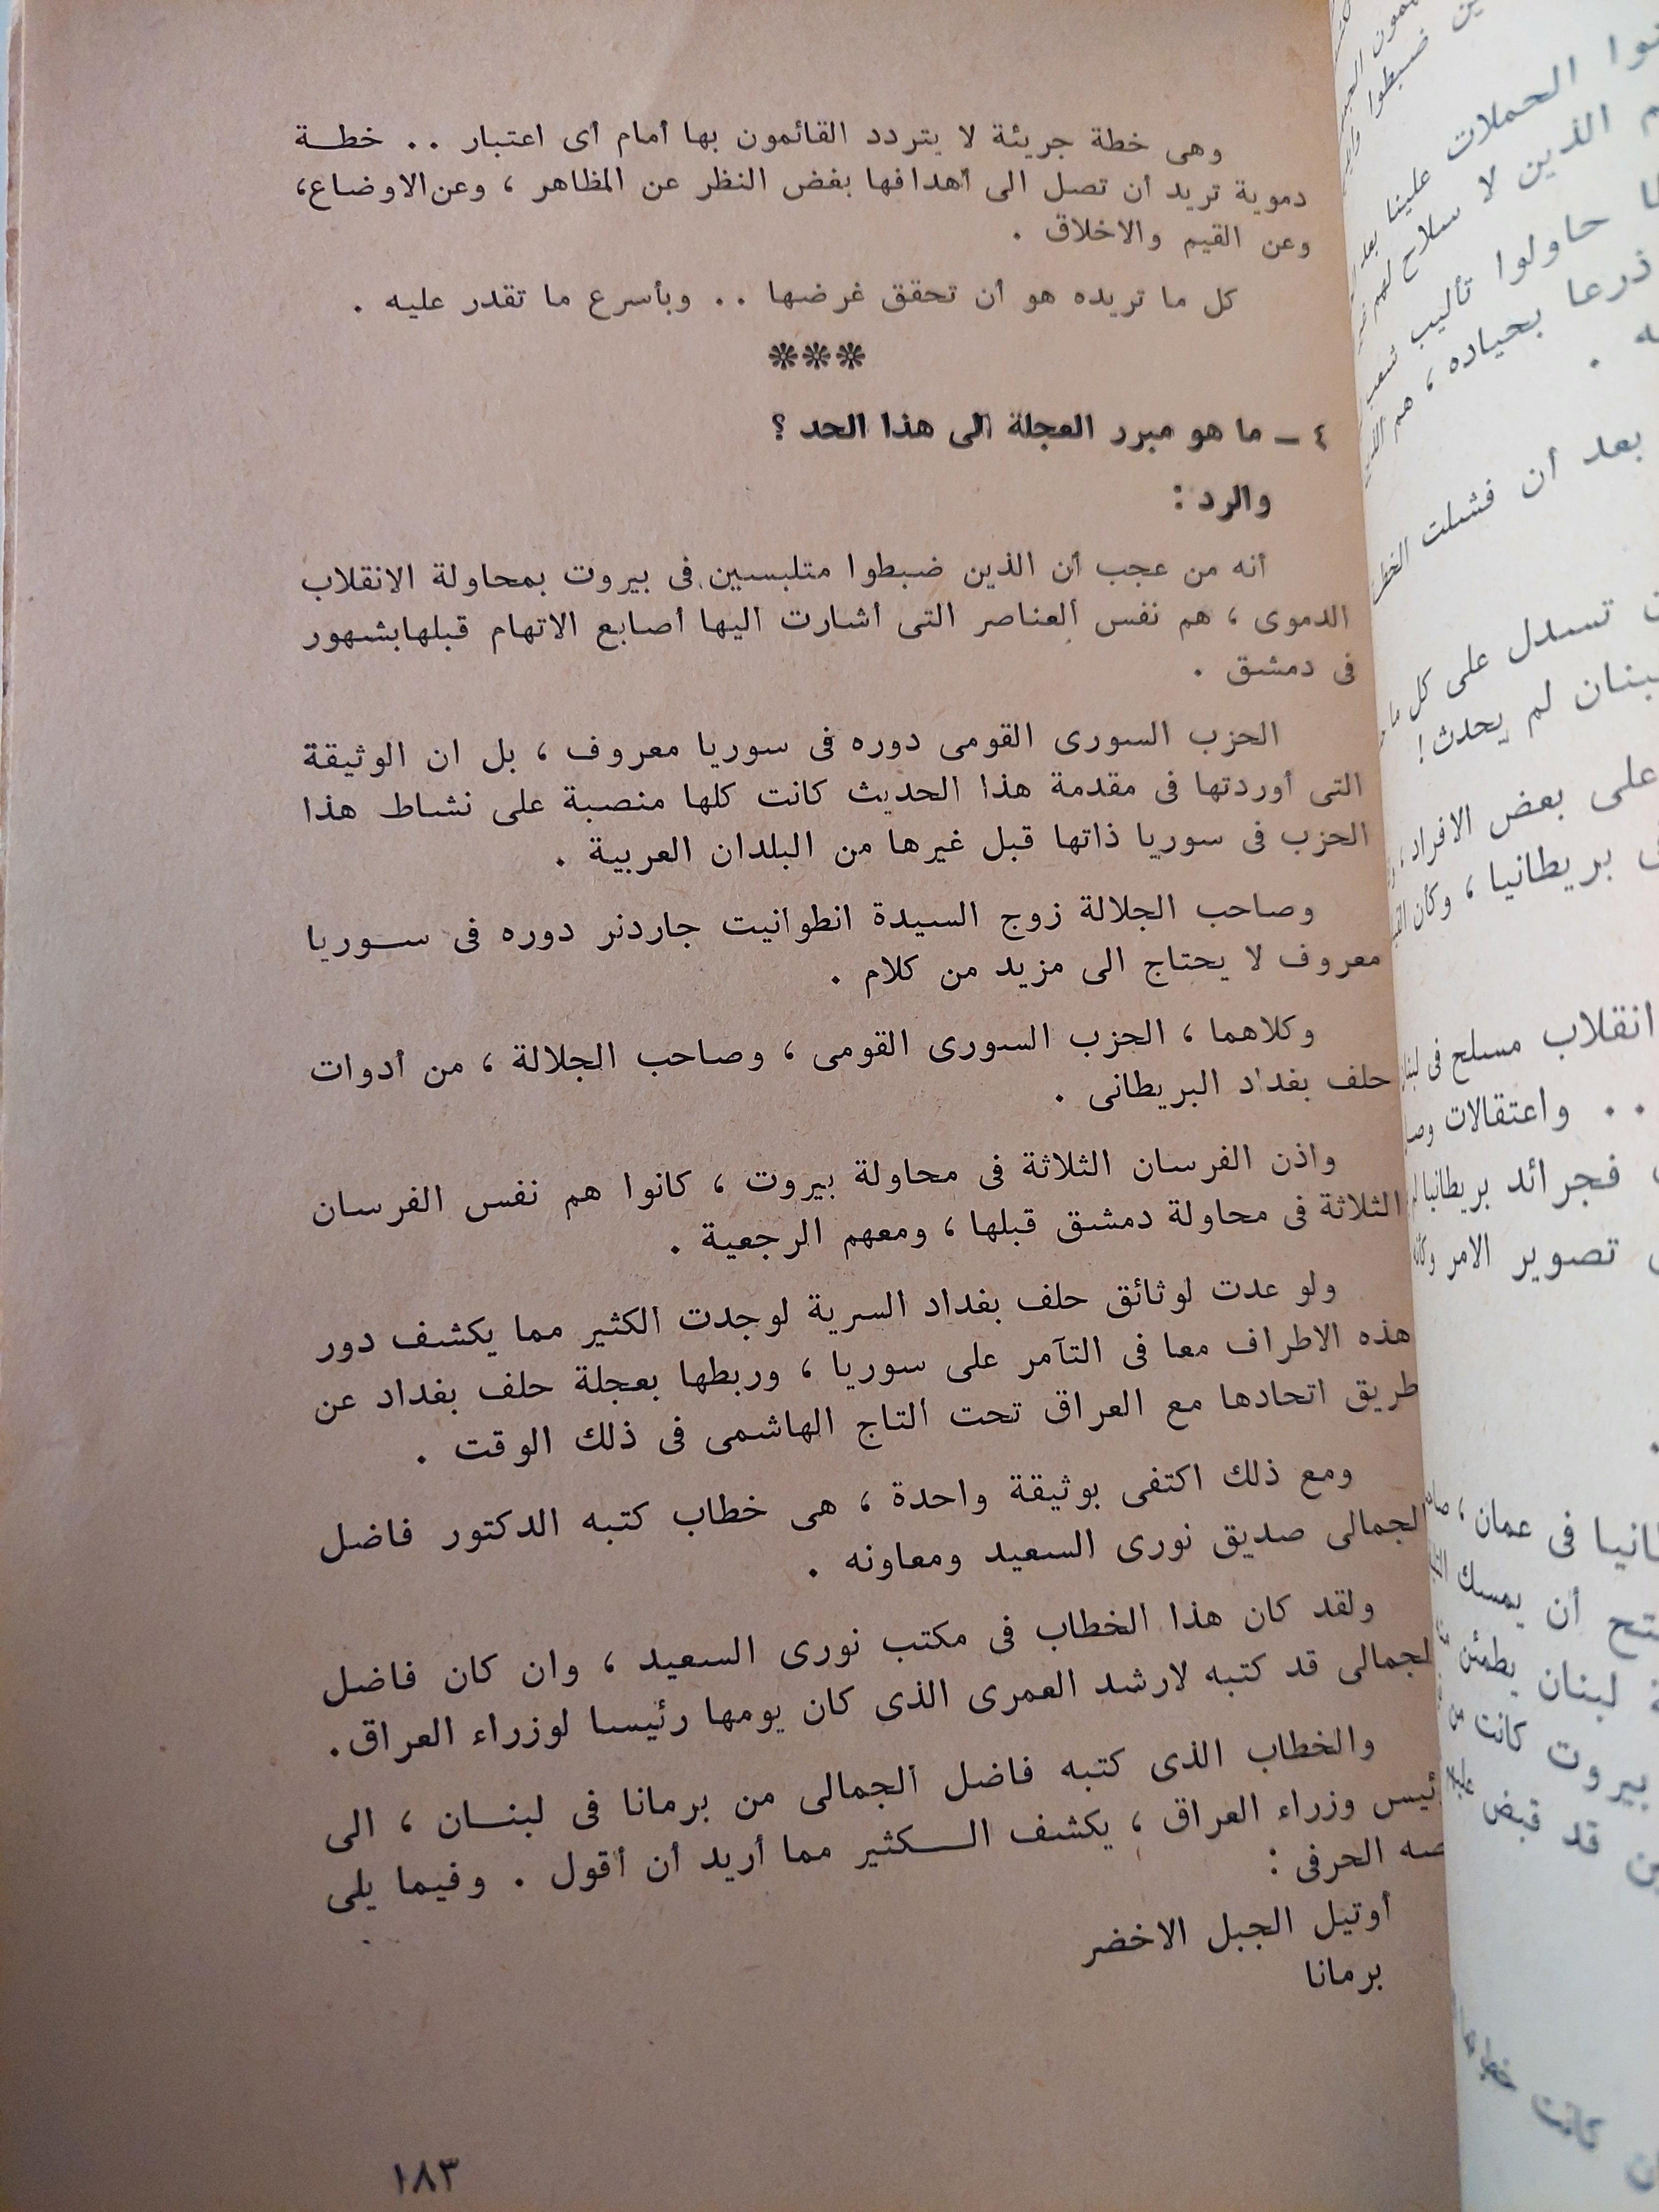 وهى خطة جريئة لا يتردد القائمون بها أمام أى اعتبار .. خطـة
دموية تريد أن تصل الى أهدافها بغض النظر عن المظاهر ، وعن الاوضاع،
وعن القيم والاخلاق .
كل ما تريده هو أن تحقق غرضها .. وبأسرع ما تقدر عليه .
***
٤ – ما هو مبرر العجلة الى هذا الحد ؟
والرد :
أنه من عجب أن الذين ضبطوا متلبسين فى بيروت بمحاولة الانقلاب
الدموى ، هم نفس العناصر التى أشارت اليها أصابع الاتهام قبلها بشهور
فى دمشق .
الحزب السورى القومى دوره فى سوريا معروف ، بل ان الوثيقة
التى أوردتها فى مقدمة هذا الحديث كانت كلها منصبة على نشاط هذا
الحزب فى سوريا ذاتها قبل غيرها من البلدان العربية .
وصاحب الجلالة زوج السيدة انطوانيت جاردنر دوره فى سـوريا
معروف لا يحتاج الى مزيد من كلام .
وكلاهما ، الحزب السورى القومى ، وصاحب الجلالة ، من أدوات
حلف بغداد البريطانى .
واذن الفرسان الثلاثة فى محاولة بيروت ، كانوا هم نفس الفرسان
الثلاثة فى محاولة دمشق قبلها ، ومعهم الرجعية .
ولو عدت لوثائق حلف بغداد السرية لوجدت الكثير مما يكشف دور
هذه الاطراف معا فى التآمر على سوريا ، وربطها بعجلة حلف بغداد عن
طريق اتحادها مع العراق تحت التاج الهاشمى فى ذلك الوقت .
ومع ذلك اكتفى بوثيقة واحدة ، هى خطاب كتبه الدكتور فاضل
الجمالى صديق نورى السعيد ومعاونه .
ولقد كان هذا الخطاب فى مكتب نورى السعيد ، وان كان فاضل
الجمالى قد كتبه لارشد العمرى الذى كان يومها رئيسا لوزراء العراق.
والخطاب الذى كتبه فاضل الجمالى من برمانا فى لبنـان ، الى
رئيس وزراء العراق ، يكشف الـكثير مما أريد أن أقول . وفيما يلى
نصه الحرفى :
أوتيل الجبل الاخضر
برمانا
١٨٣
الحملات علينا
الذين لا سلاح لهم
حاولوا تأليب
ذرعا بحياده ، هم
بعد أن فشلت
تسدل على كل
لم يحدث!
على بعض الافراد ،
بريطانيا ، وكأن
انقلاب مسلح فى
.. واعتقالات
فجرائد بريطانيا
تصوير الامر
فى عمان ،
أن يمسك
لبنان يطمئن
بيروت كانت من
قد قبض